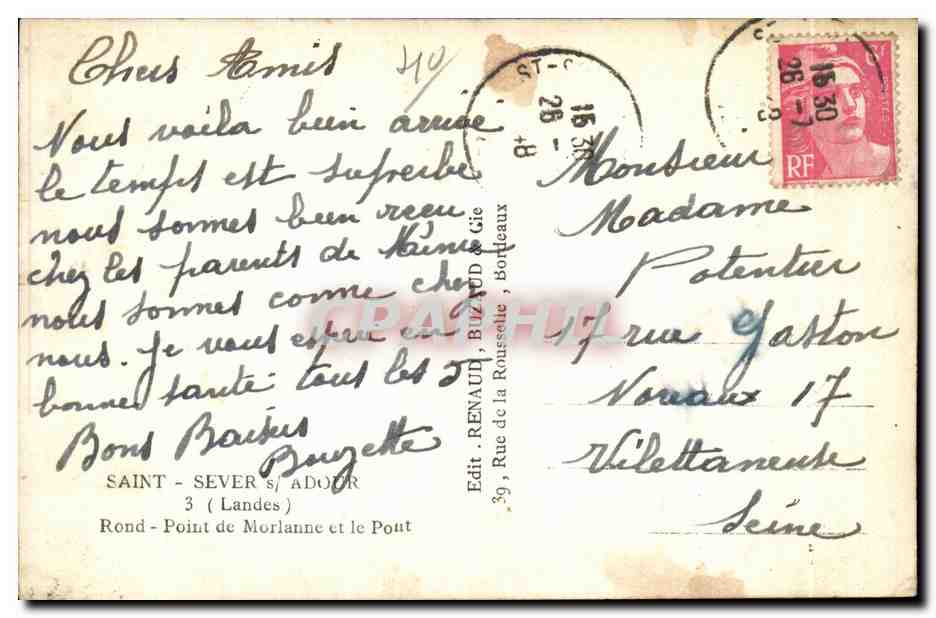 Chers Amis
40
Nous voila bien arrivé
le temps est superbe
nous sommes bien reçu
chez les parents de
nous sommes comme chez
nous. Je vous espere en
bonne santé tous les 5
Bons Baisers
SAINT - SEVER s/ ADOUR
3 (Landes)
Rond - Point de Morlanne et le Pont
Edit. RENAUD, BUZAUD & Cie
39, Rue de la Rousselle, Bordeaux
ST-S
15 30
26 -
15 30
26 - 7
RF
Monsieur
Madame
Potentier
17 rue Gaston
17
Vilettaneuse
Seine
CPAPHIL